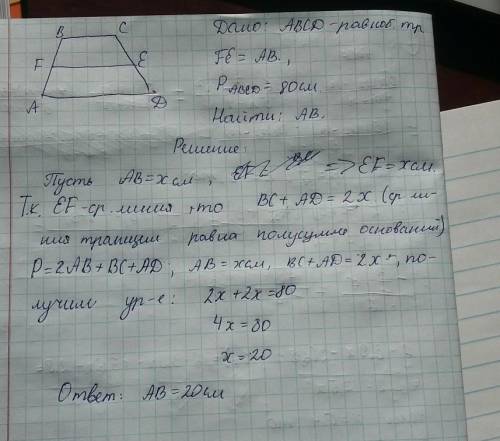 B C
F E
A D
Дано: ABCD-равноб. тр.
FE = AB,
P ABCD = 80см
Найти: AB.
Решение:
Пусть AB = x см, => EF = x см.
Т.к. EF-ср. линия, то BC + AD = 2x (ср. ли-
ния трапеции равна полусумме оснований)
P = 2AB + BC + AD; AB = x см, BC + AD = 2x, по-
лучим ур-е: 2x + 2x = 80
4x = 80
x = 20
Ответ: AB = 20 см